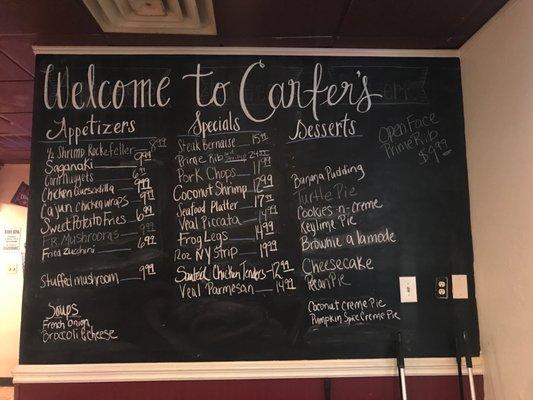 Welcome to Carfer's
Appetizers
1/2 Shrimp Rockefeller 8.99
Saganaki 9.99
Corn Nuggets 6.99
Chicken Quesadilla 9.99
Cajun Chicken Wraps 9.99
Sweet Potato Fries 6.99
FR. Mushrooms
Fried Zucchini 6.99
Stuffed mushroom 9.99
Soups
French Onion
Broccoli Cheese
Specials
Steak bernaise
Prime Rib Shrimp
Pork Chops 11.99
Coconut Shrimp 12.99
Seafood Platter 17.99
Veal Piccata 14.99
Frog Legs 14.99
12oz NY Strip 19.99
Sauteéd Chicken Tenders 12.99
Veal Parmesan 14.99
Desserts
Banana Pudding
Turtle Pie
Cookies-n-creme
Keylime Pie
Brownie alamode
Cheesecake
Pecan Pie
Coconut creme Pie
Pumpkin Spice Creme Pie
Open Face
Prime Rib
$9.99